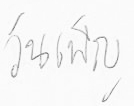 วันเพ็ญ